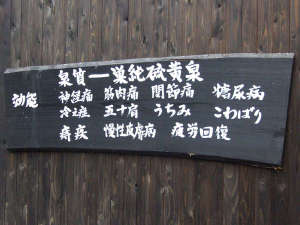 泉質ー単純硫黄泉
効能 神経痛 筋肉痛 関節痛 糖尿病
冷え症 五十肩 うちみ こわばり
痔疾 慢性皮膚病 疲労回復